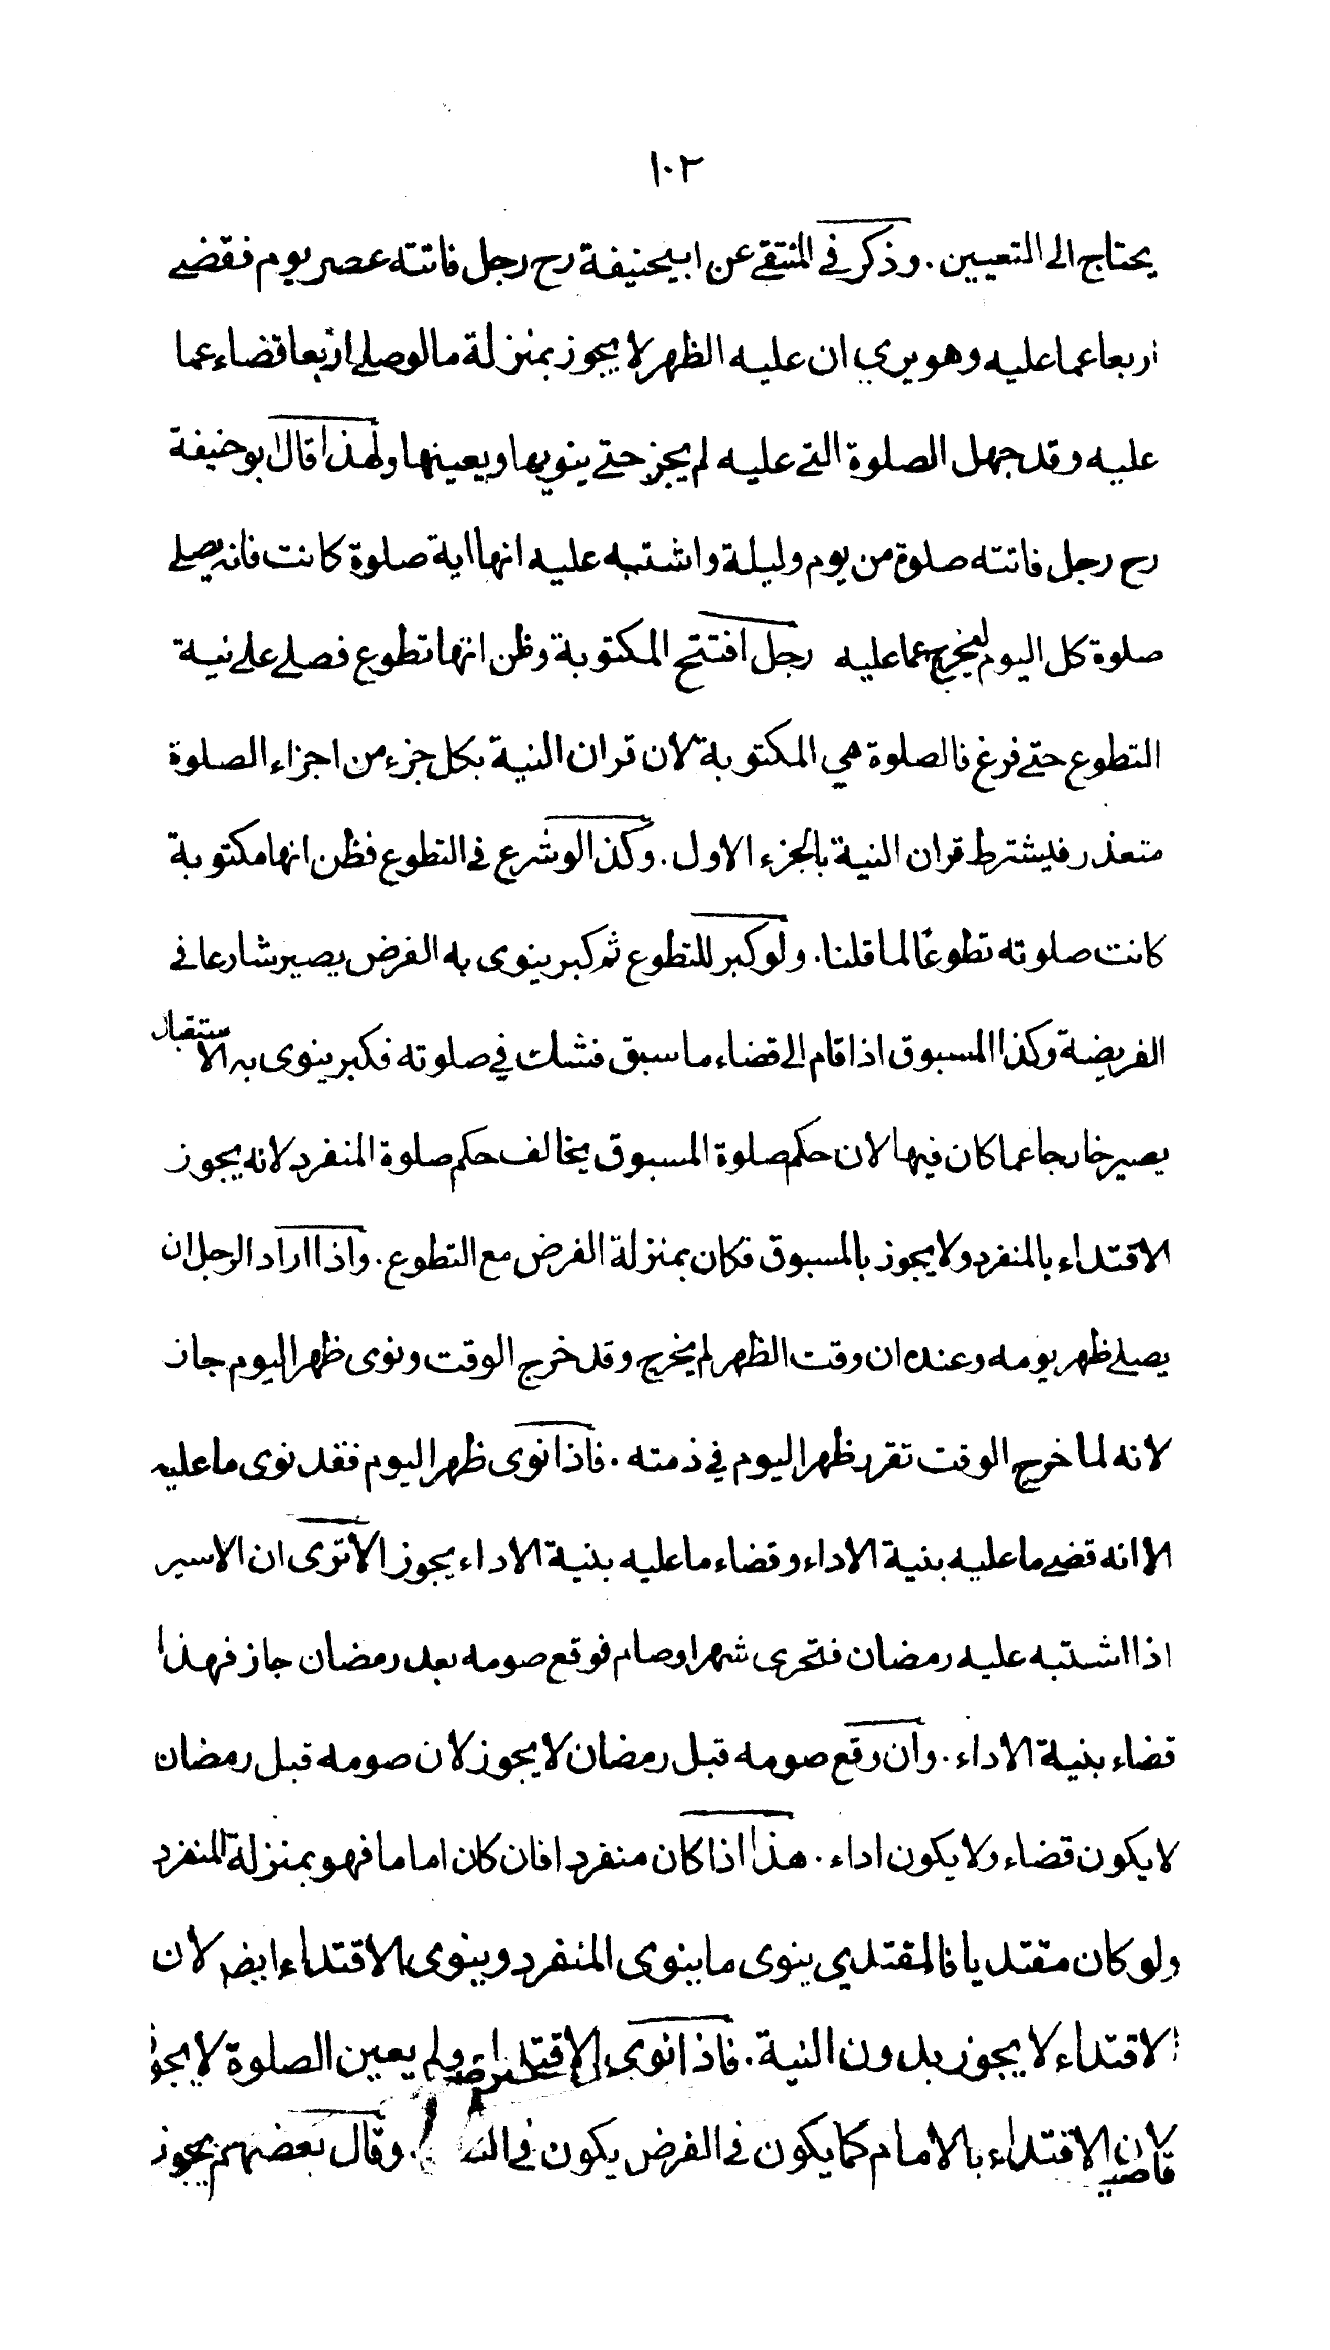 ١٠٢
يحتاج الى التعيين . وذكر فى المنتقى عن ابيحنيفة رح رجل فاتته عصر يوم فقضى
اربعا عما عليه وهو يرى ان عليه الظهر لا يجوز بمنزلة ما لو صلى اربعا قضاء عما
عليه وقد جهل الصلوة التى عليه لم يجز حتى ينويها ويعينها ولهذا قال ابو حنيفة
رح رجل فاتته صلوة من يوم وليلة واشتبه عليه انها اية صلوة كانت فانه يصلى
صلوة كل اليوم ليخرج عما عليه رجل افتتح المكتوبة وظن انها تطوع فصلى على نية
التطوع حتى فرغ فالصلوة هى المكتوبة لان قران النية بكل جزء من اجزاء الصلوة
متعذر فيشترط قران النية بالجزء الاول . وكذا لو شرع فى التطوع فظن انها مكتوبة
كانت صلوته تطوعًا لما قلنا . ولو كبر للتطوع ثم كبر ينوى به الفرض يصير شارعا فى
الفريضة وكذا المسبوق اذا قام الى قضاء ما سبق فشك في صلوته فكبر ينوى به الاستقبال
يصير خارجا عما كان فيها لان حكم صلوة المسبوق يخالف حكم صلوة المنفرد لانه يجوز
الاقتداء بالمنفرد ولا يجوز بالمسبوق فكان بمنزلة الفرض مع التطوع . واذا اراد الرجل ان
يصلى ظهر يومه وعنده ان وقت الظهر لم يخرج وقد خرج الوقت ونوى ظهر اليوم جاز
لانه لما خرج الوقت تقرر ظهر اليوم في ذمته . فاذا نوى ظهر اليوم فقد نوى ما عليه
الا انه قضى ما عليه بنية الاداء وقضاء ما عليه بنية الاداء يجوز الا ترى ان الاسير
اذا اشتبه عليه رمضان فتحرى شهرا وصام فوقع صومه بعد رمضان جاز فهذا
قضاء بنية الاداء . وان وقع صومه قبل رمضان لا يجوز لان صومه قبل رمضان
لا يكون قضاء ولا يكون اداء . هذا اذا كان منفردا فان كان اماما فهو بمنزلة المنفرد
ولو كان مقتديا فالمقتدي ينوى ما ينوى المنفرد وينوى الاقتداء ايضا لان
الاقتداء لا يجوز بدون النية . فاذا نوى الاقتداء ولم يعين الصلوة لا يجوز
لان الاقتداء بالامام كما يكون فى الفرض يكون فى . وقال بعضهم يجوز
قاضي